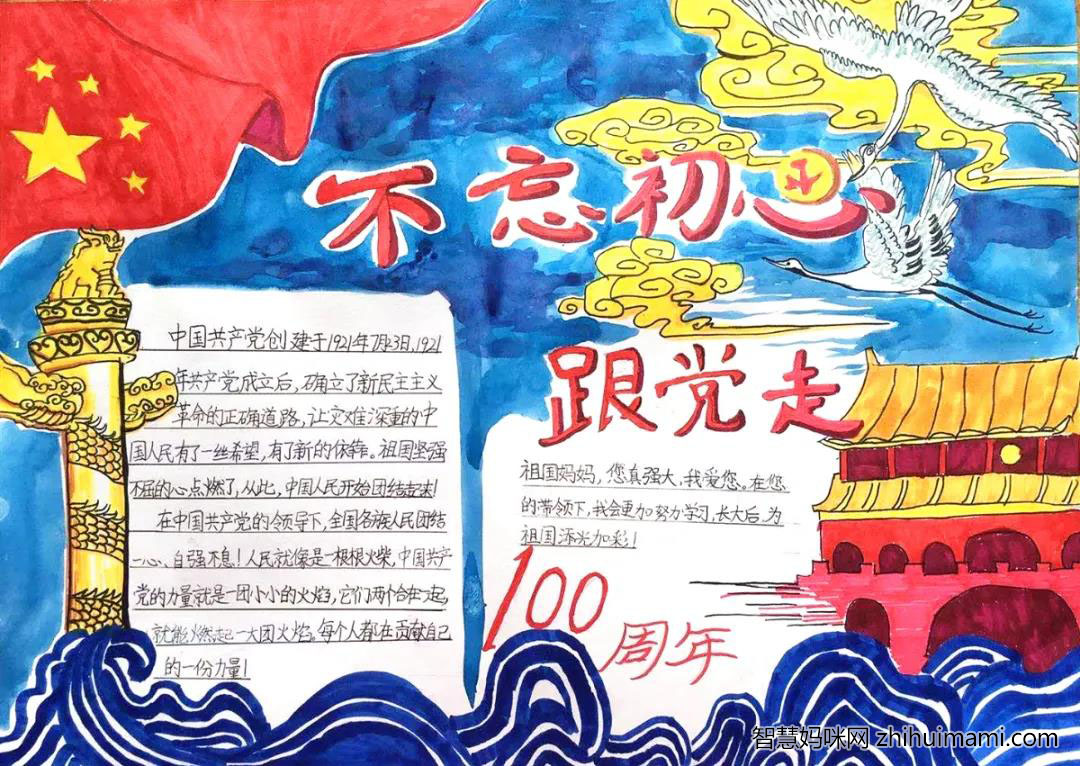 不忘初心
跟党走
中国共产党创建于1921年7月23日,1921
年共产党成立后,确立了新民主主义
革命的正确道路,让灾难深重的中
国人民有了一丝希望,有了新的依靠。祖国坚强
不屈的心点燃了,从此,中国人民开始团结起来!
在中国共产党的领导下,全国各族人民团结
一心、自强不息!人民就像是一根根火柴,中国共产
党的力量就是一团小小的火焰,它们两个合在一起,
就能燃起一大团火焰。每个人都在贡献自己
的一份力量!
祖国妈妈,您真强大,我爱您。在您
的带领下,我会更加努力学习,长大后,为
祖国添光加彩!
100
周年
智慧妈咪网 zhihuimami.com